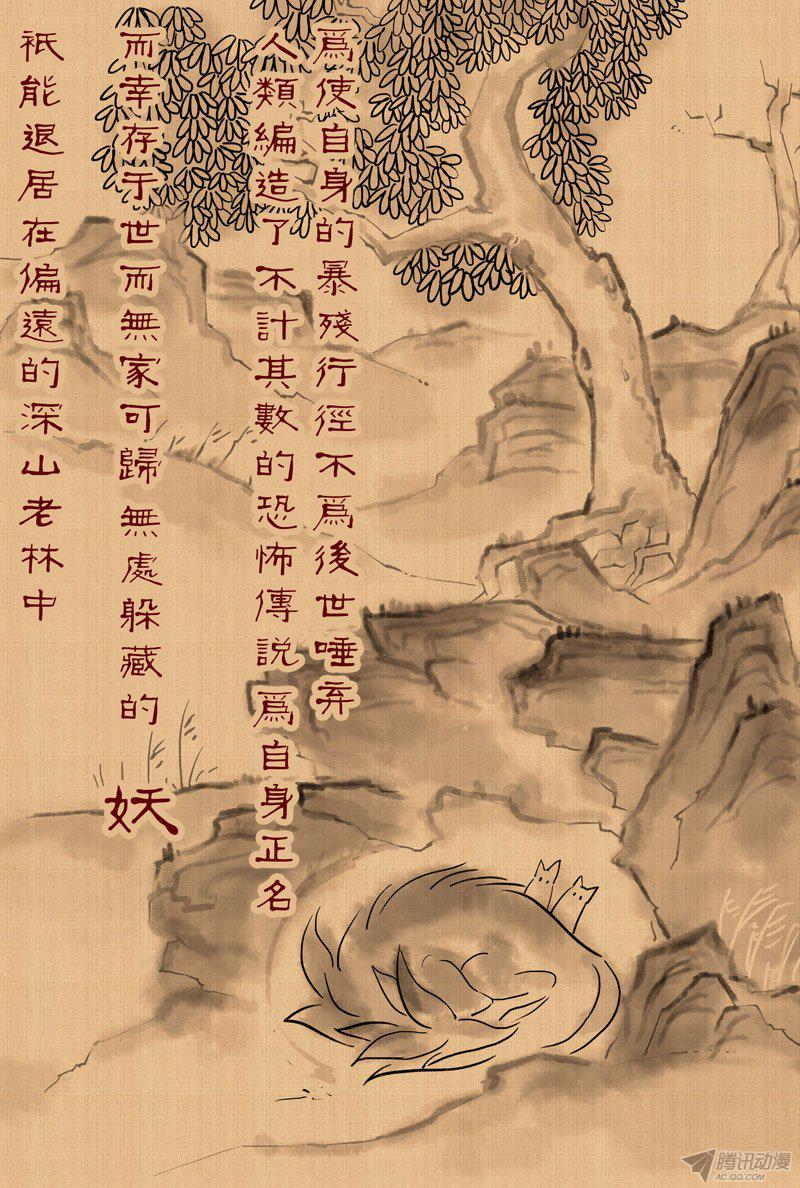 爲使自身的暴殘行徑不爲後世唾弃
人類編造了不計其數的恐怖傳説爲自身正名
而幸存于世而無家可歸無處躲藏的
妖
衹能退居在偏遠的深山老林中
腾讯动漫
AC.QQ.COM